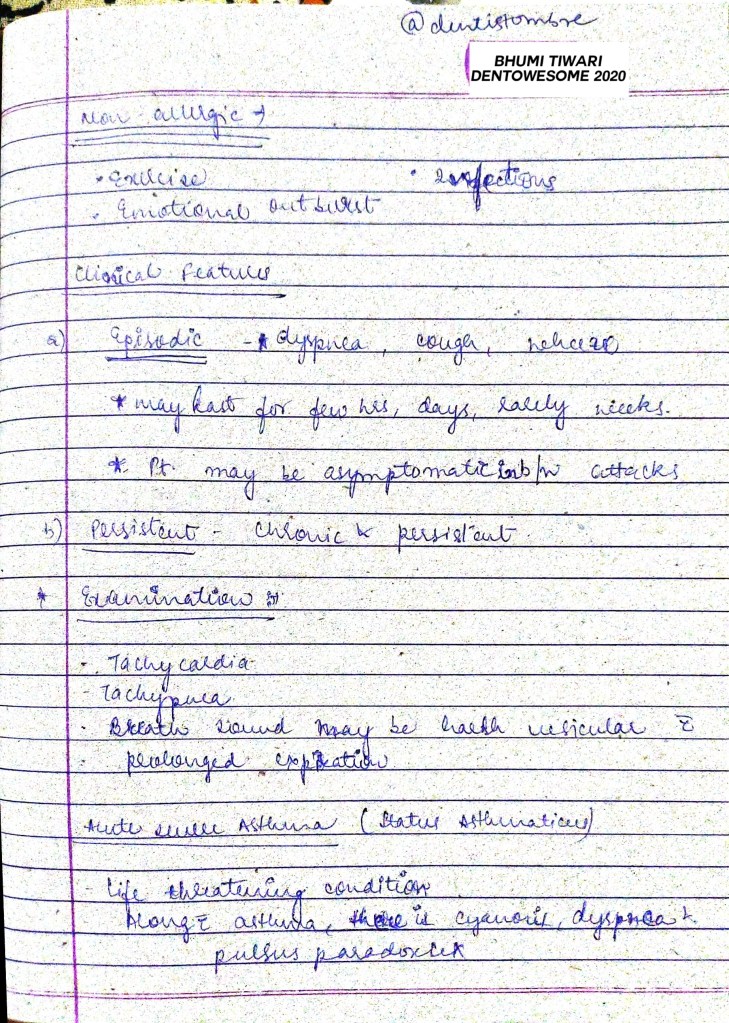 @dentistombre
BHUMI TIWARI
DENTOWESOME 2020
Non-allergic →
• Exercise • Infections
• Emotional outburst
Clinical Features
a) Episodic - * dyspnea, cough, wheeze
* may last for few hrs, days, rarely weeks.
* Pt. may be asymptomatic in b/w attacks
b) Persistent - chronic & persistent.
* Examination :-
• Tachycardia
- Tachypnea
• Breath sound may be harsh vesicular c̄
• prolonged expiration
Acute severe Asthma (Status Asthmaticus)
- Life threatening condition
Along c̄ asthma, there is cyanosis, dyspnea &
pulsus paradoxux